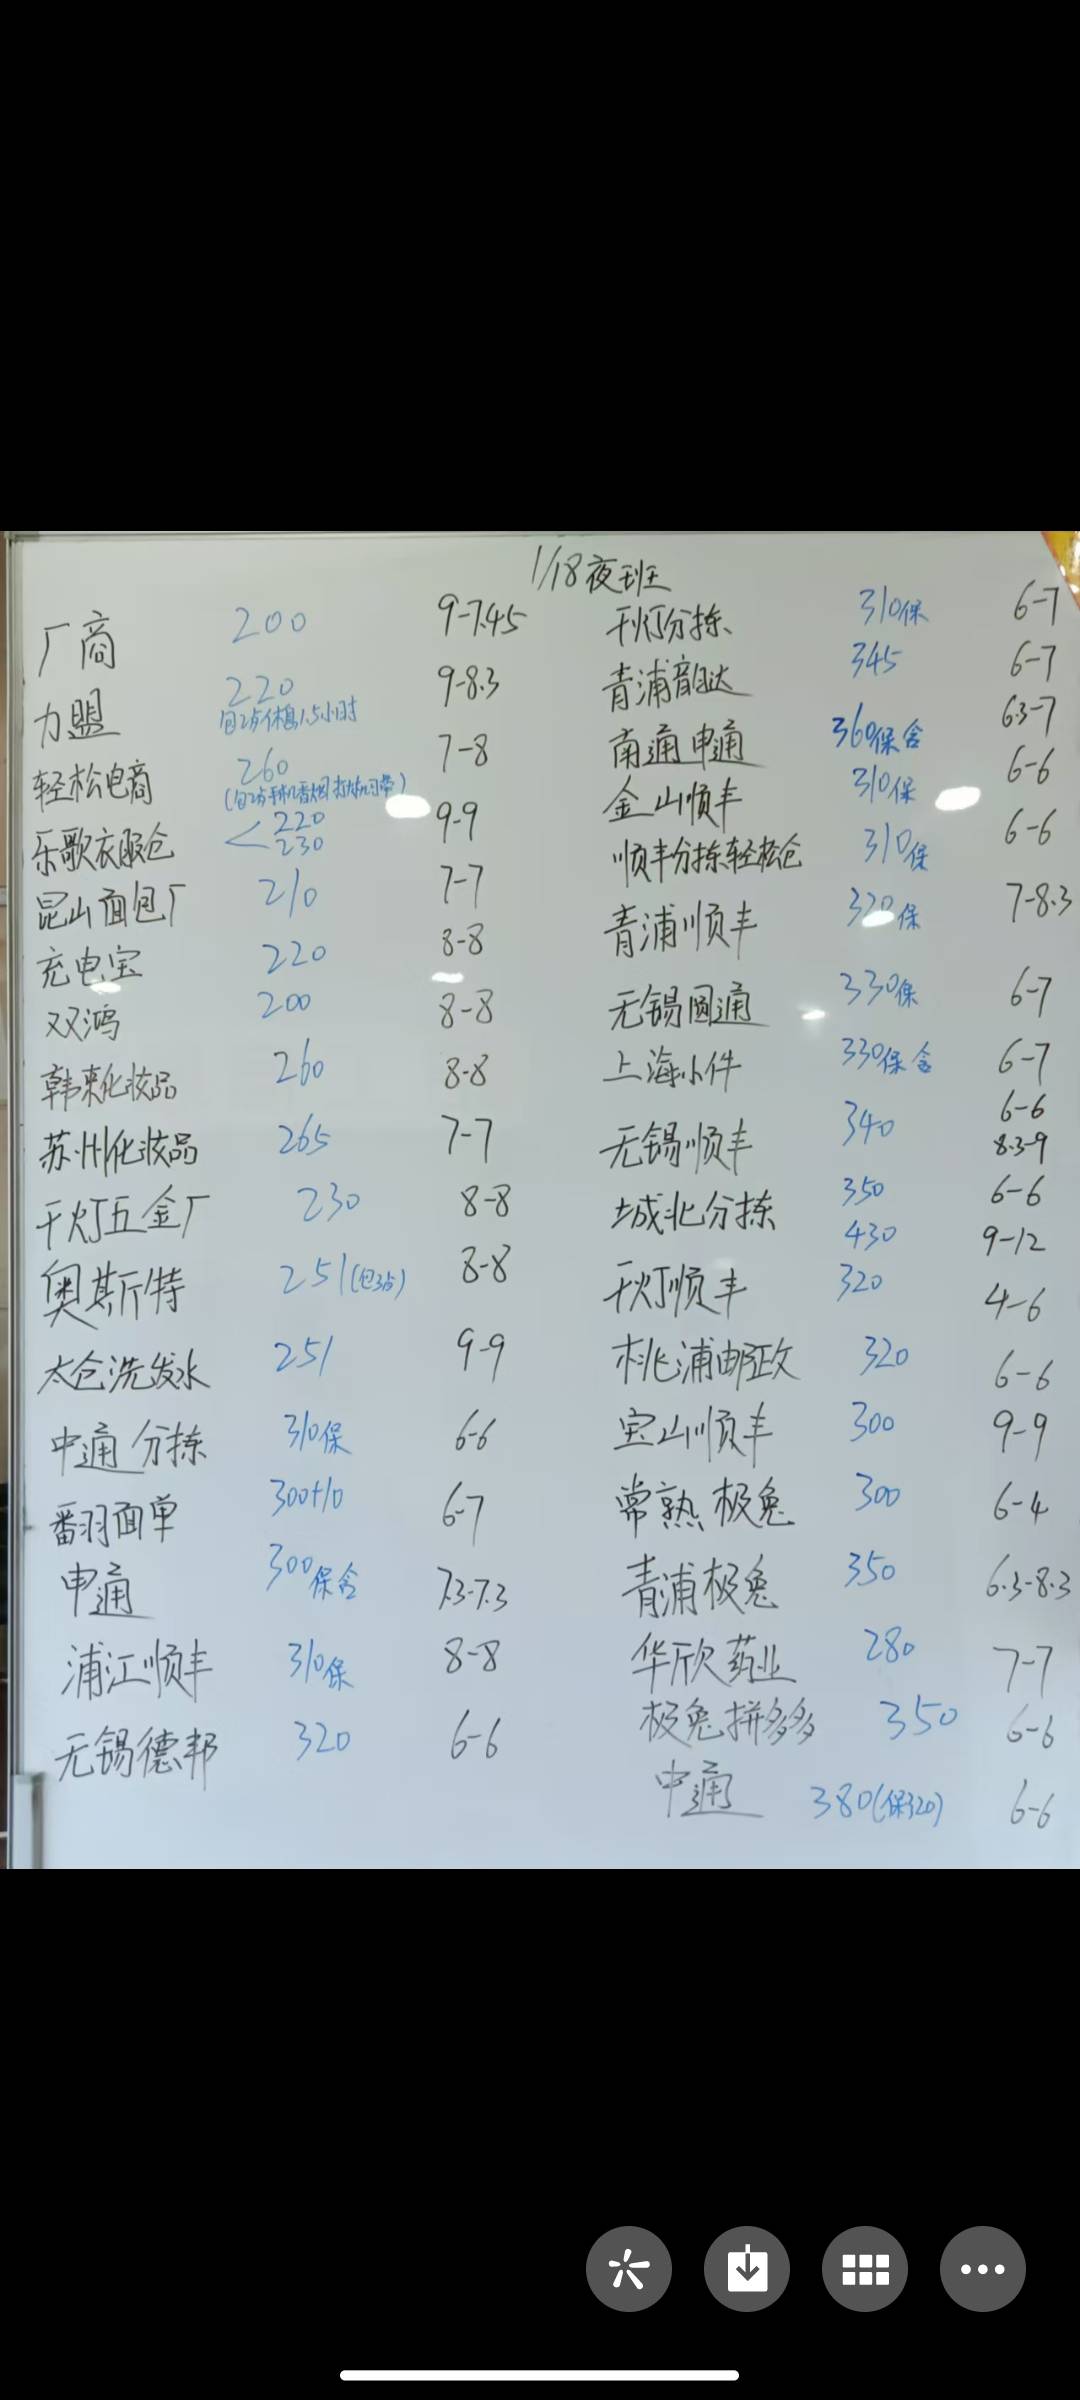 1/18夜班
厂商 200 9-7.45
力盟 220 9-8.3
包2点休息1.5小时
轻松电商 260 7-8
(包2点手机香烟打火机可带)
乐歌衣服仓 <220 230 9-9
昆山面包厂 210 7-7
充电宝 220 8-8
双鸿 200 8-8
韩束化妆品 260 8-8
苏州化妆品 265 7-7
千灯五金厂 230 8-8
奥斯特 251(包3点) 8-8
太仓洗发水 251 9-9
中通分拣 310保 6-6
番羽面单 300+10 6-7
申通 300保含 7.3-7.3
浦江顺丰 310保 8-8
无锡德邦 320 6-6
千灯分拣 310保 6-7
青浦韵达 345 6-7
南通申通 360保含 6.3-7
金山顺丰 310保 6-6
顺丰分拣轻松仓 310保 6-6
青浦顺丰 320保 7-8.3
无锡圆通 330保 6-7
上海小件 330保含 6-7
无锡顺丰 340 6-6
8.3-9
城北分拣 350 6-6
430 9-12
千灯顺丰 320 4-6
桃浦邮政 320 6-6
宝山顺丰 300 9-9
常熟极兔 300 6-4
青浦极兔 350 6.3-8.3
华欣药业 280 7-7
极兔拼多多 350 6-6
中通 380(保320) 6-6